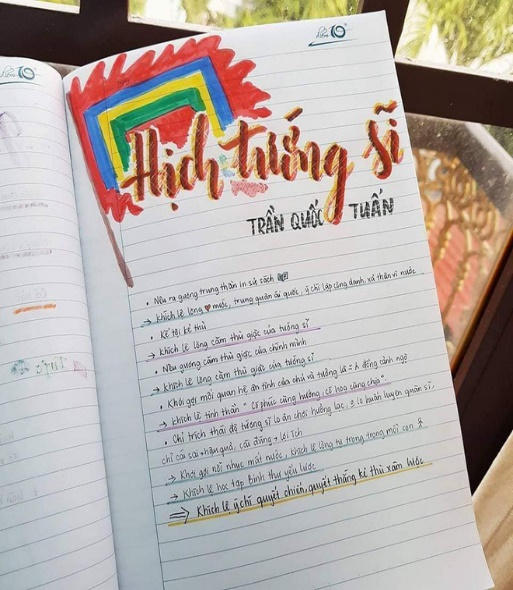 Hịch tướng sĩ
TRẦN QUỐC TUẤN
• Nêu ra gương trung thần in sử sách
→ Khích lệ lòng ♥ nước, trung quân ái quốc, ý chí lập công danh, xả thân vì nước
• Kể tội kẻ thù
→ Khích lệ lòng căm thù giặc của tướng sĩ
• Nêu gương căm thù giặc của chính mình
→ Khích lệ lòng căm thù giặc của tướng sĩ
• Khơi gợi mối quan hệ ân tình của chủ và tướng là = & đồng cảnh ngộ
→ Khích lệ tinh thần "Có phúc cùng hưởng, có họa cùng chịu"
• Chỉ trích thái độ tướng sĩ lo ăn chơi hưởng lạc, ko lo huấn luyện quân sĩ,
chỉ cái sai + hậu quả, cái đúng + lợi ích
→ Khơi gợi nỗi nhục mất nước, khích lệ lòng tự trọng trong mỗi con
→ Khích lệ học tập Binh thư yếu lược
⇒ Khích lệ ý chí quyết chiến, quyết thắng kẻ thù xâm lược